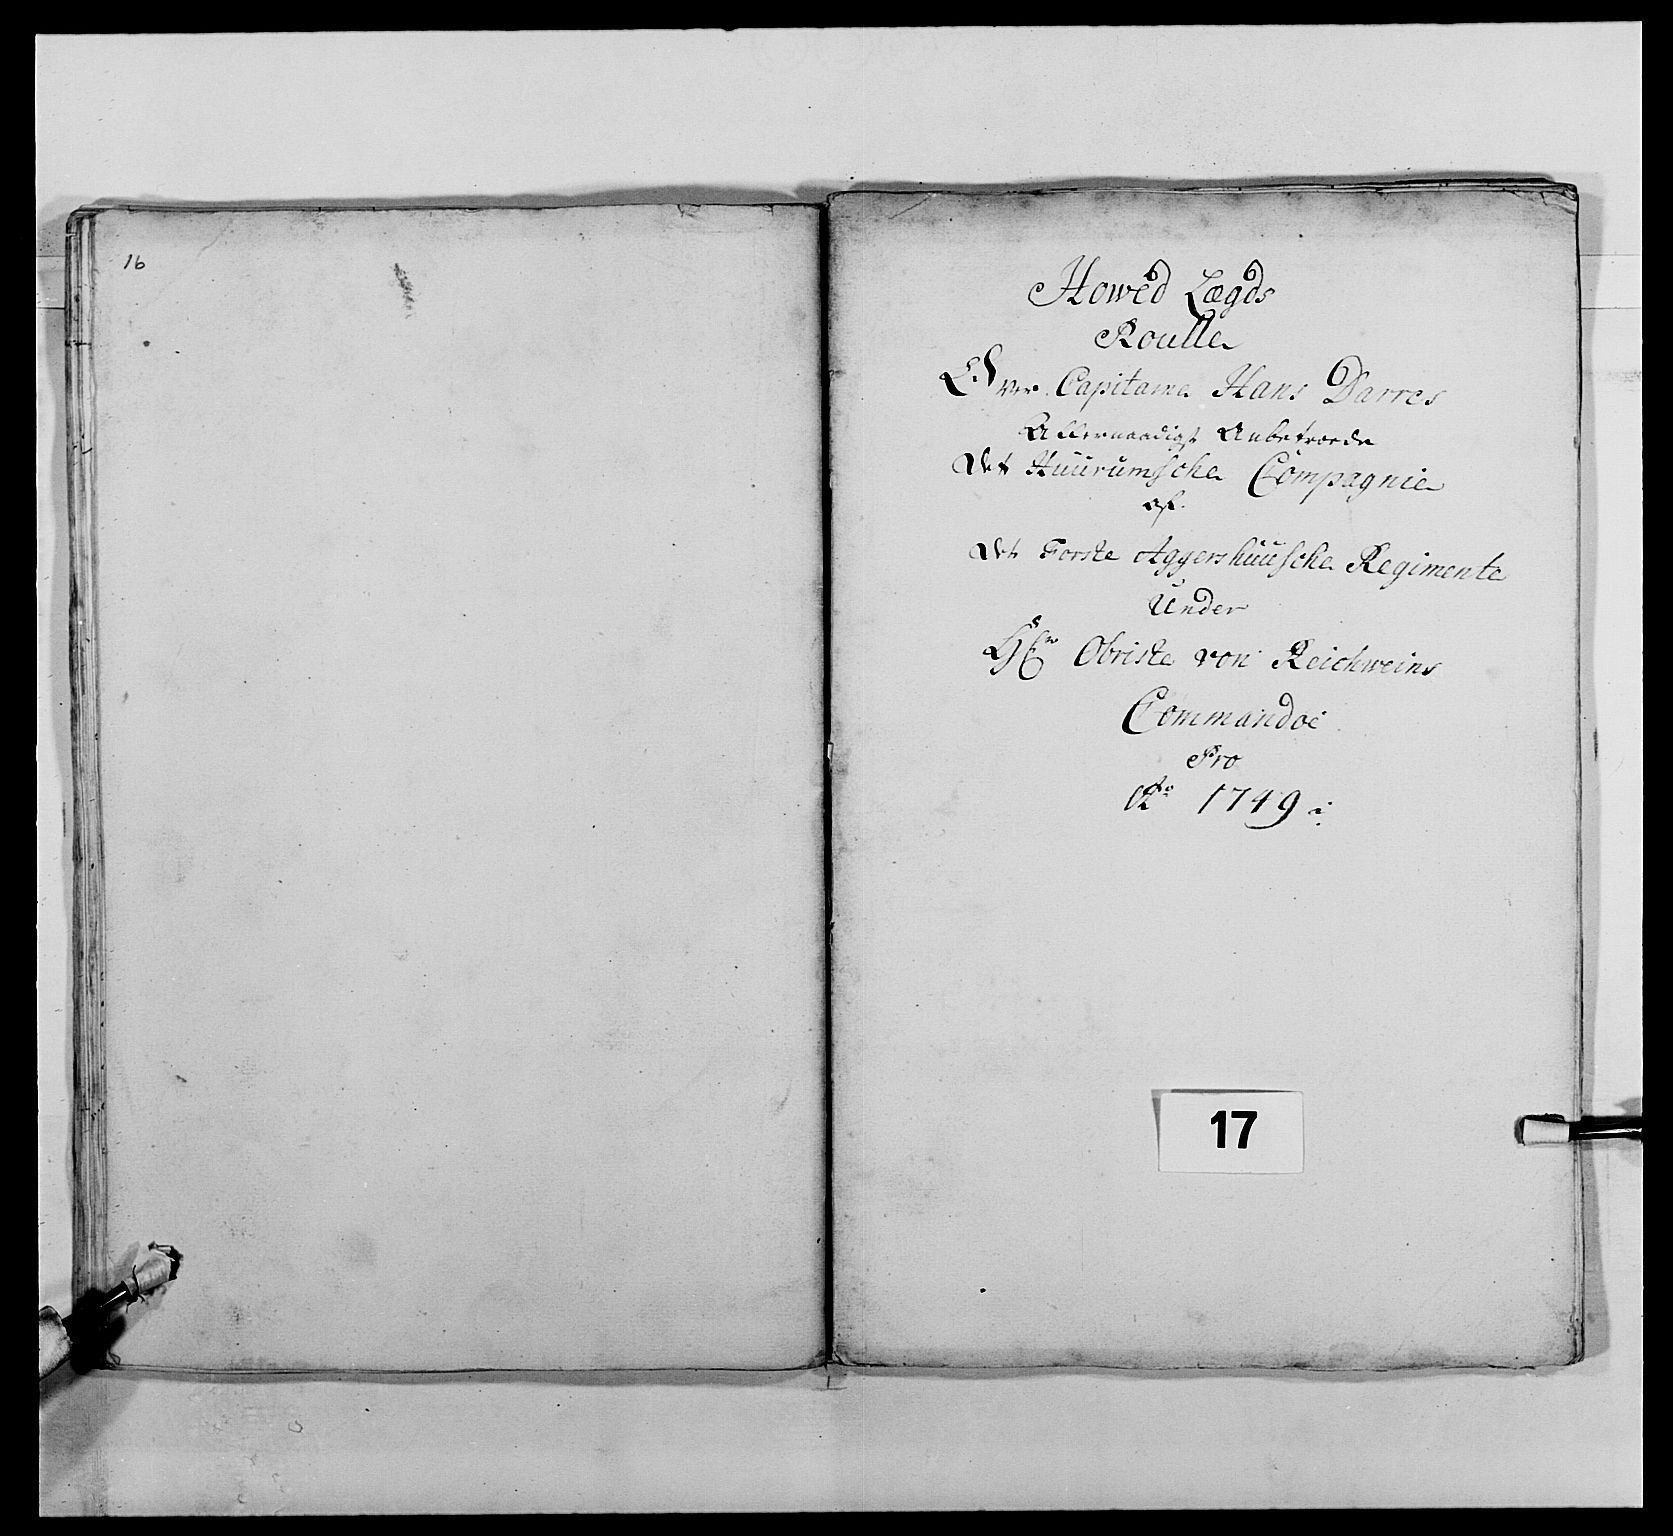 16
Howed Lægds
Roulle
Over Capitaine Hans Darres
Allernaadigst Anbetroede
Det Huurumsche Compagnie
af
Det Förste Aggershuusche Regimente
Under
Hr Obriste von Reichweins
Commandoe
Pro
Ao 1749
17